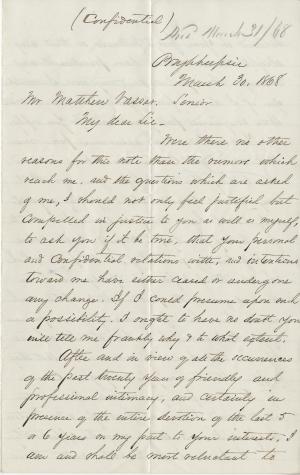 (Confidential)
March 31/68
Poughkeepsie
March 30. 1868
Mr Matthew Vassar, Senior
My dear Sir -
Were there no other
reasons for this note than the rumors which
reach me, and the questions which are asked
of me, I should not only feel justified but
compelled in justice to you as well as myself,
to ask you if it be true, that your personal
and Confidential relations with, and intentions
toward me have either ceased or undergone
any change. If I could presume upon such
a possibility, I ought to have no doubt you
will tell me frankly why & to what extent.
After and in view of all the occurrences
of the past twenty years of friendly and
professional intimacy, and certainly in
presence of the entire devotion of the last 5
or 6 years on my part to your interests, I
am and shall be most reluctant to